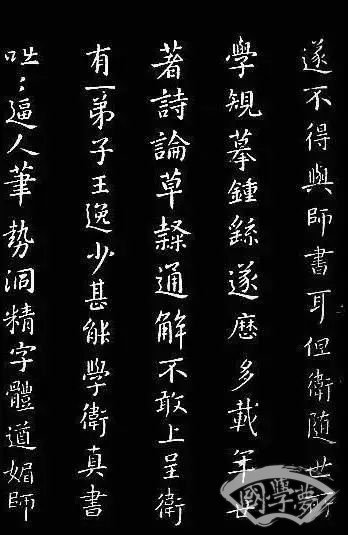 遂不得與師書耳但衛隨世所
學規摹鍾繇遂歷多載年廿
著詩論草隸通解不敢上呈衛
有一弟子王逸少甚能學衛真書
咄〻逼人筆勢洞精字體遒媚師
國學夢